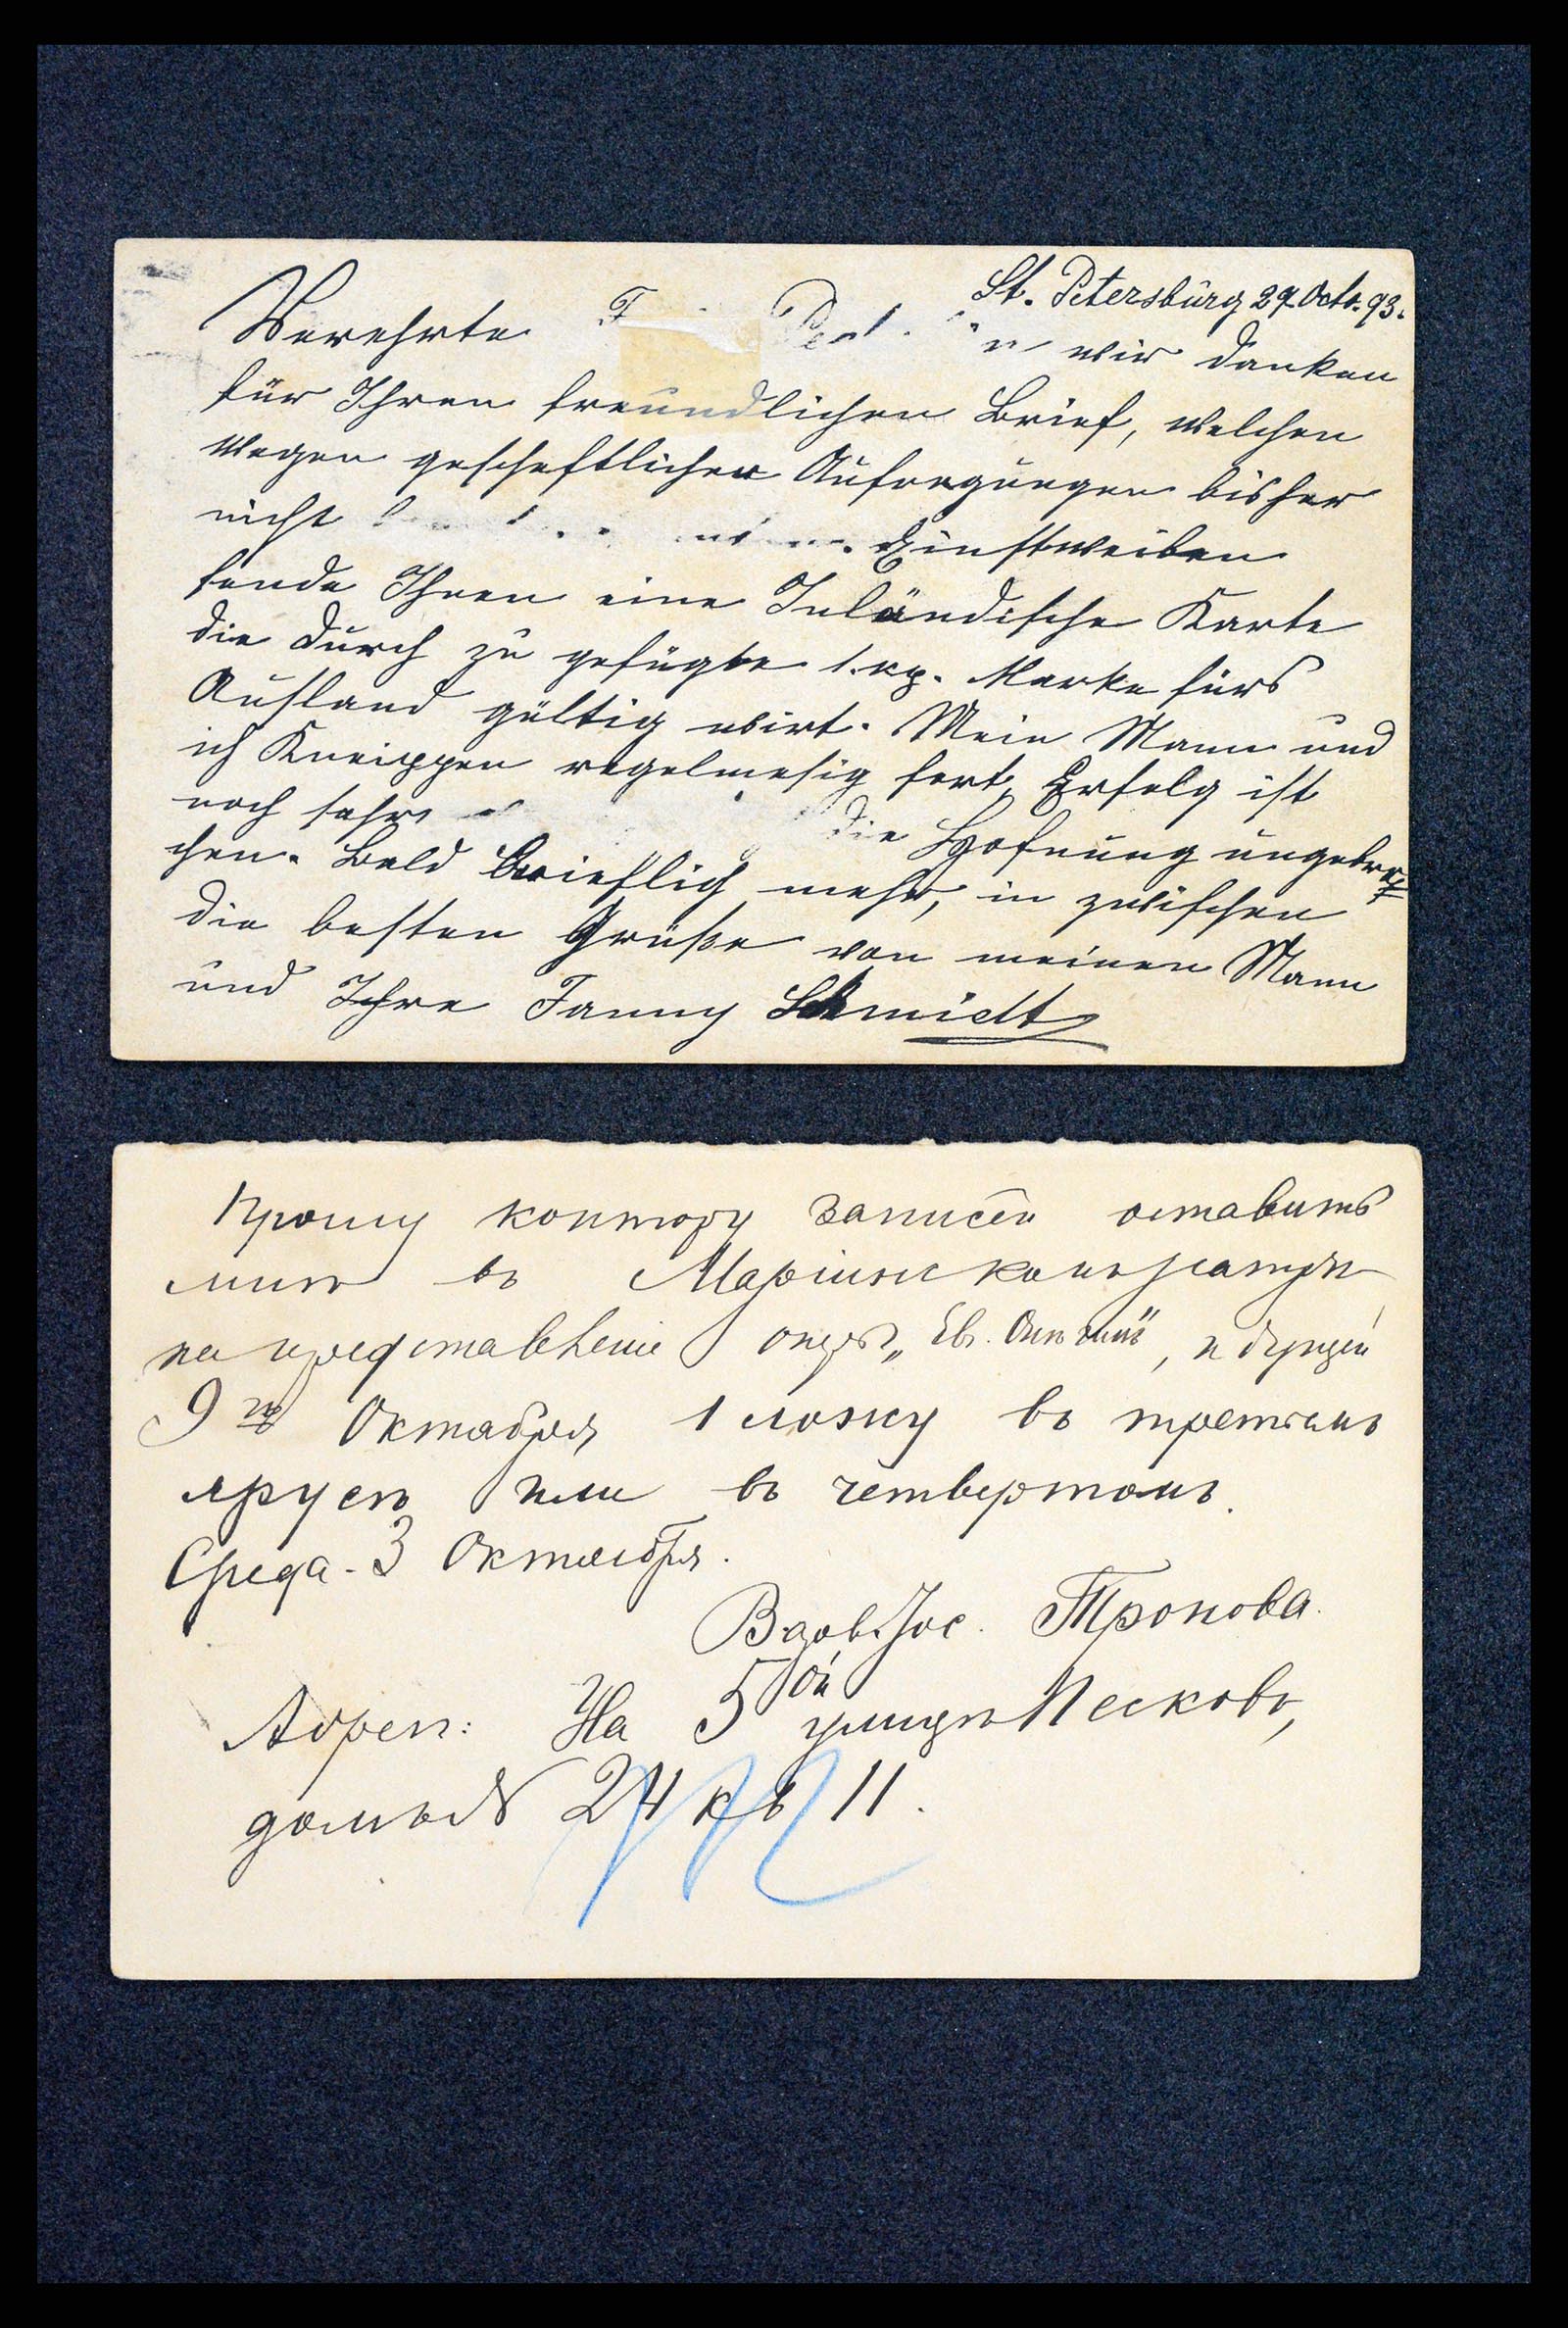 St. Petersbürg 29. Octo. 93.
Verehrte wir danken
für Ihren freundlichen Brief, welchen
wegen gescheftlicher Aufregungen bisher
nicht Einstweilen
sende Ihnen eine Inländische Karte
die durch zu gefügte 1. kp. Marke fürs
Ausland gültig wirt. Mein Mann und
ich Kneippen regelmesig fort, Erfolg ist
noch sehr die Hofnung ungebro-
chen. Bald brieflich mehr, in zwischen
die besten Grüße von meinen Mann
und Ihre Fanny Schmidt
Прошу контору записей оставить
мнѣ въ театрѣ
на представленіе оперы „Евг. Онѣгинъ",
9го Октября, 1 ложу въ третьемъ
ярусѣ или въ четвертомъ.
Среда - 3 Октября.
Тропова.
Адрес: На 5ой улицѣ Песковъ,
домъ № 24 кв 11.